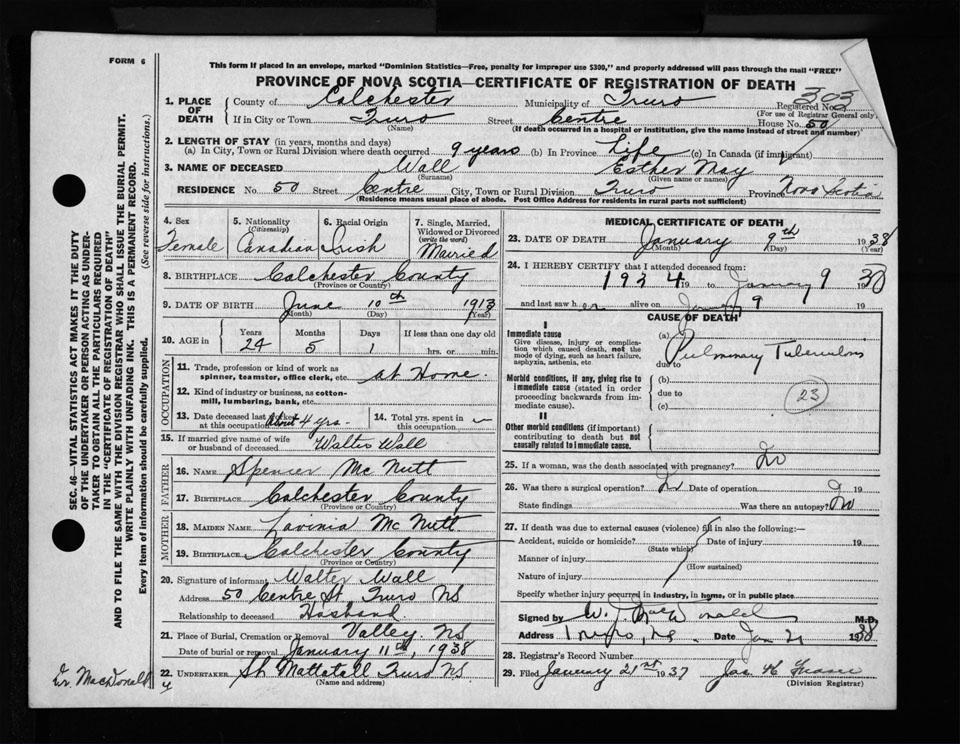 FORM 6
This form if placed in an envelope, marked "Dominion Statistics—Free, penalty for improper use $300," and properly addressed will pass through the mail "FREE"
PROVINCE OF NOVA SCOTIA—CERTIFICATE OF REGISTRATION OF DEATH
SEC. 46— VITAL STATISTICS ACT MAKES IT THE DUTY
OF THE UNDERTAKER OR PERSON ACTING AS UNDER-
TAKER TO OBTAIN ALL THE PARTICULARS REQUIRED
IN THE "CERTIFICATE OF REGISTRATION OF DEATH"
AND TO FILE THE SAME WITH THE DIVISION REGISTRAR WHO SHALL ISSUE THE BURIAL PERMIT.
WRITE PLAINLY WITH UNFADING INK. THIS IS A PERMANENT RECORD.
Every item of information should be carefully supplied. (See reverse side for instructions.)
1. PLACE OF DEATH County of Colchester Municipality of Truro Registered No. 303
(For use of Registrar General only)
If in City or Town Truro Street Centre House No. 50
(Name) (If death occurred in a hospital or institution, give the name instead of street and number)
2. LENGTH OF STAY (in years, months and days)
(a) In City, Town or Rural Division where death occurred 9 years (b) In Province Life (c) In Canada (if immigrant)
3. NAME OF DECEASED Wall Esther May
(Surname) (Given name or names)
RESIDENCE No. 50 Street Centre City, Town or Rural Division Truro Province Nova Scotia
(Residence means usual place of abode. Post Office Address for residents in rural parts not sufficient)
4. Sex Female
5. Nationality (Citizenship) Canadian
6. Racial Origin Irish
7. Single, Married, Widowed or Divorced (write the word) Married
8. BIRTHPLACE Colchester County
(Province or County)
9. DATE OF BIRTH June 10th 1913
(Month) (Day) (Year)
10. AGE in Years 24 Months 5 Days 1 If less than one day old hrs. or min.
OCCUPATION
11. Trade, profession or kind of work as spinner, teamster, office clerk, etc. at Home.
12. Kind of industry or business, as cotton-mill, lumbering, bank, etc.
13. Date deceased last worked at this occupation About 4 yrs. 14. Total yrs. spent in this occupation
15. If married give name of wife or husband of deceased Walter Wall
FATHER
16. NAME Spencer Mc Nutt
17. BIRTHPLACE Colchester County
(Province or County)
MOTHER
18. MAIDEN NAME Lavinia Mc Nutt
19. BIRTHPLACE Colchester County
(Province or County)
20. Signature of informant Walter Wall
Address 50 Centre St Truro NS
Relationship to deceased Husband
21. Place of Burial, Cremation or Removal Valley. NS
Date of burial or removal January 11th, 1938
22. UNDERTAKER Mattatall Truro NS.
(Name and address)
Dr. MacDonald
MEDICAL CERTIFICATE OF DEATH
23. DATE OF DEATH January 9th 1938
(Month) (Day) (Year)
24. I HEREBY CERTIFY that I attended deceased from:
1934 19 to January 9 19
and last saw her alive on January 9 19
CAUSE OF DEATH
I
Immediate cause
Give disease, injury or complication which caused death, not the mode of dying, such as heart failure, asphyxia, asthenia, etc.
(a) Pulmonary Tuberculosis
due to
Morbid conditions, if any, giving rise to immediate cause (stated in order proceeding backwards from immediate cause).
(b)
due to
(c)
23
II
Other morbid conditions (if important) contributing to death but not causally related to immediate cause.
25. If a woman, was the death associated with pregnancy? No
26. Was there a surgical operation? No Date of operation 19
State findings Was there an autopsy? No
27. If death was due to external causes (violence) fill in also the following:—
Accident, suicide or homicide? Date of injury 19
(State which)
Manner of injury
(How sustained)
Nature of injury
Specify whether injury occurred in industry, in home, or in public place
Signed by W. J. MacDonald M.D.
Address Truro, N.S. Date Jan 21 1938
28. Registrar's Record Number
29. Filed January 21st 1937 Jas
(Division Registrar)